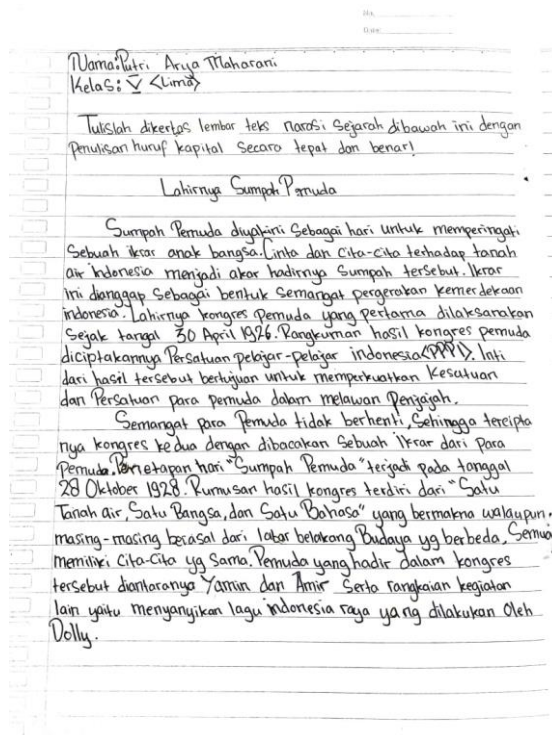 No.
Date:
Nama: Putri Arya Maharani
Kelas: V <Lima>
Tulislah dikertas lembar teks narasi Sejarah dibawah ini dengan
Penulisan huruf kapital Secara tepat dan benar!
Lahirnya Sumpah Pemuda
Sumpah Pemuda diyakini Sebagai hari untuk memperingati
Sebuah ikrar anak bangsa. Cinta dan Cita-cita terhadap tanah
air indonesia menjadi akar hadirnya Sumpah tersebut. Ikrar
ini dianggap Sebagai bentuk Semangat pergerakan kemerdekaan
indonesia. Lahirnya kongres Pemuda yang pertama dilaksanakan
Sejak tangal 30 April 1926. Rangkuman hasil kongres pemuda
diciptakannya Persatuan pelajar-pelajar indonesia (PPPI). Inti
dari hasil tersebut bertujuan untuk memperkuatkan Kesatuan
dan Persatuan para pemuda dalam melawan Penjajah.
Semangat para Pemuda tidak berhenti, Sehingga tercipta
nya kongres ke dua dengan dibacakan Sebuah ikrar dari Para
Pemuda. Penetapan hari "Sumpah Pemuda" terjadi pada tanggal
28 Oktober 1928. Rumusan hasil kongres terdiri dari "Satu
Tanah air, Satu Bangsa, dan Satu Bahasa" yang bermakna walaupun.
masing-masing berasal dari latar belakang Budaya yg berbeda, Semua
memiliki Cita-Cita yg Sama. Pemuda yang hadir dalam kongres
tersebut diantaranya Yamin dan Amir Serta rangkaian kegiatan
lain yaitu menyanyikan lagu indonesia raya yang dilakukan Oleh
Dolly.